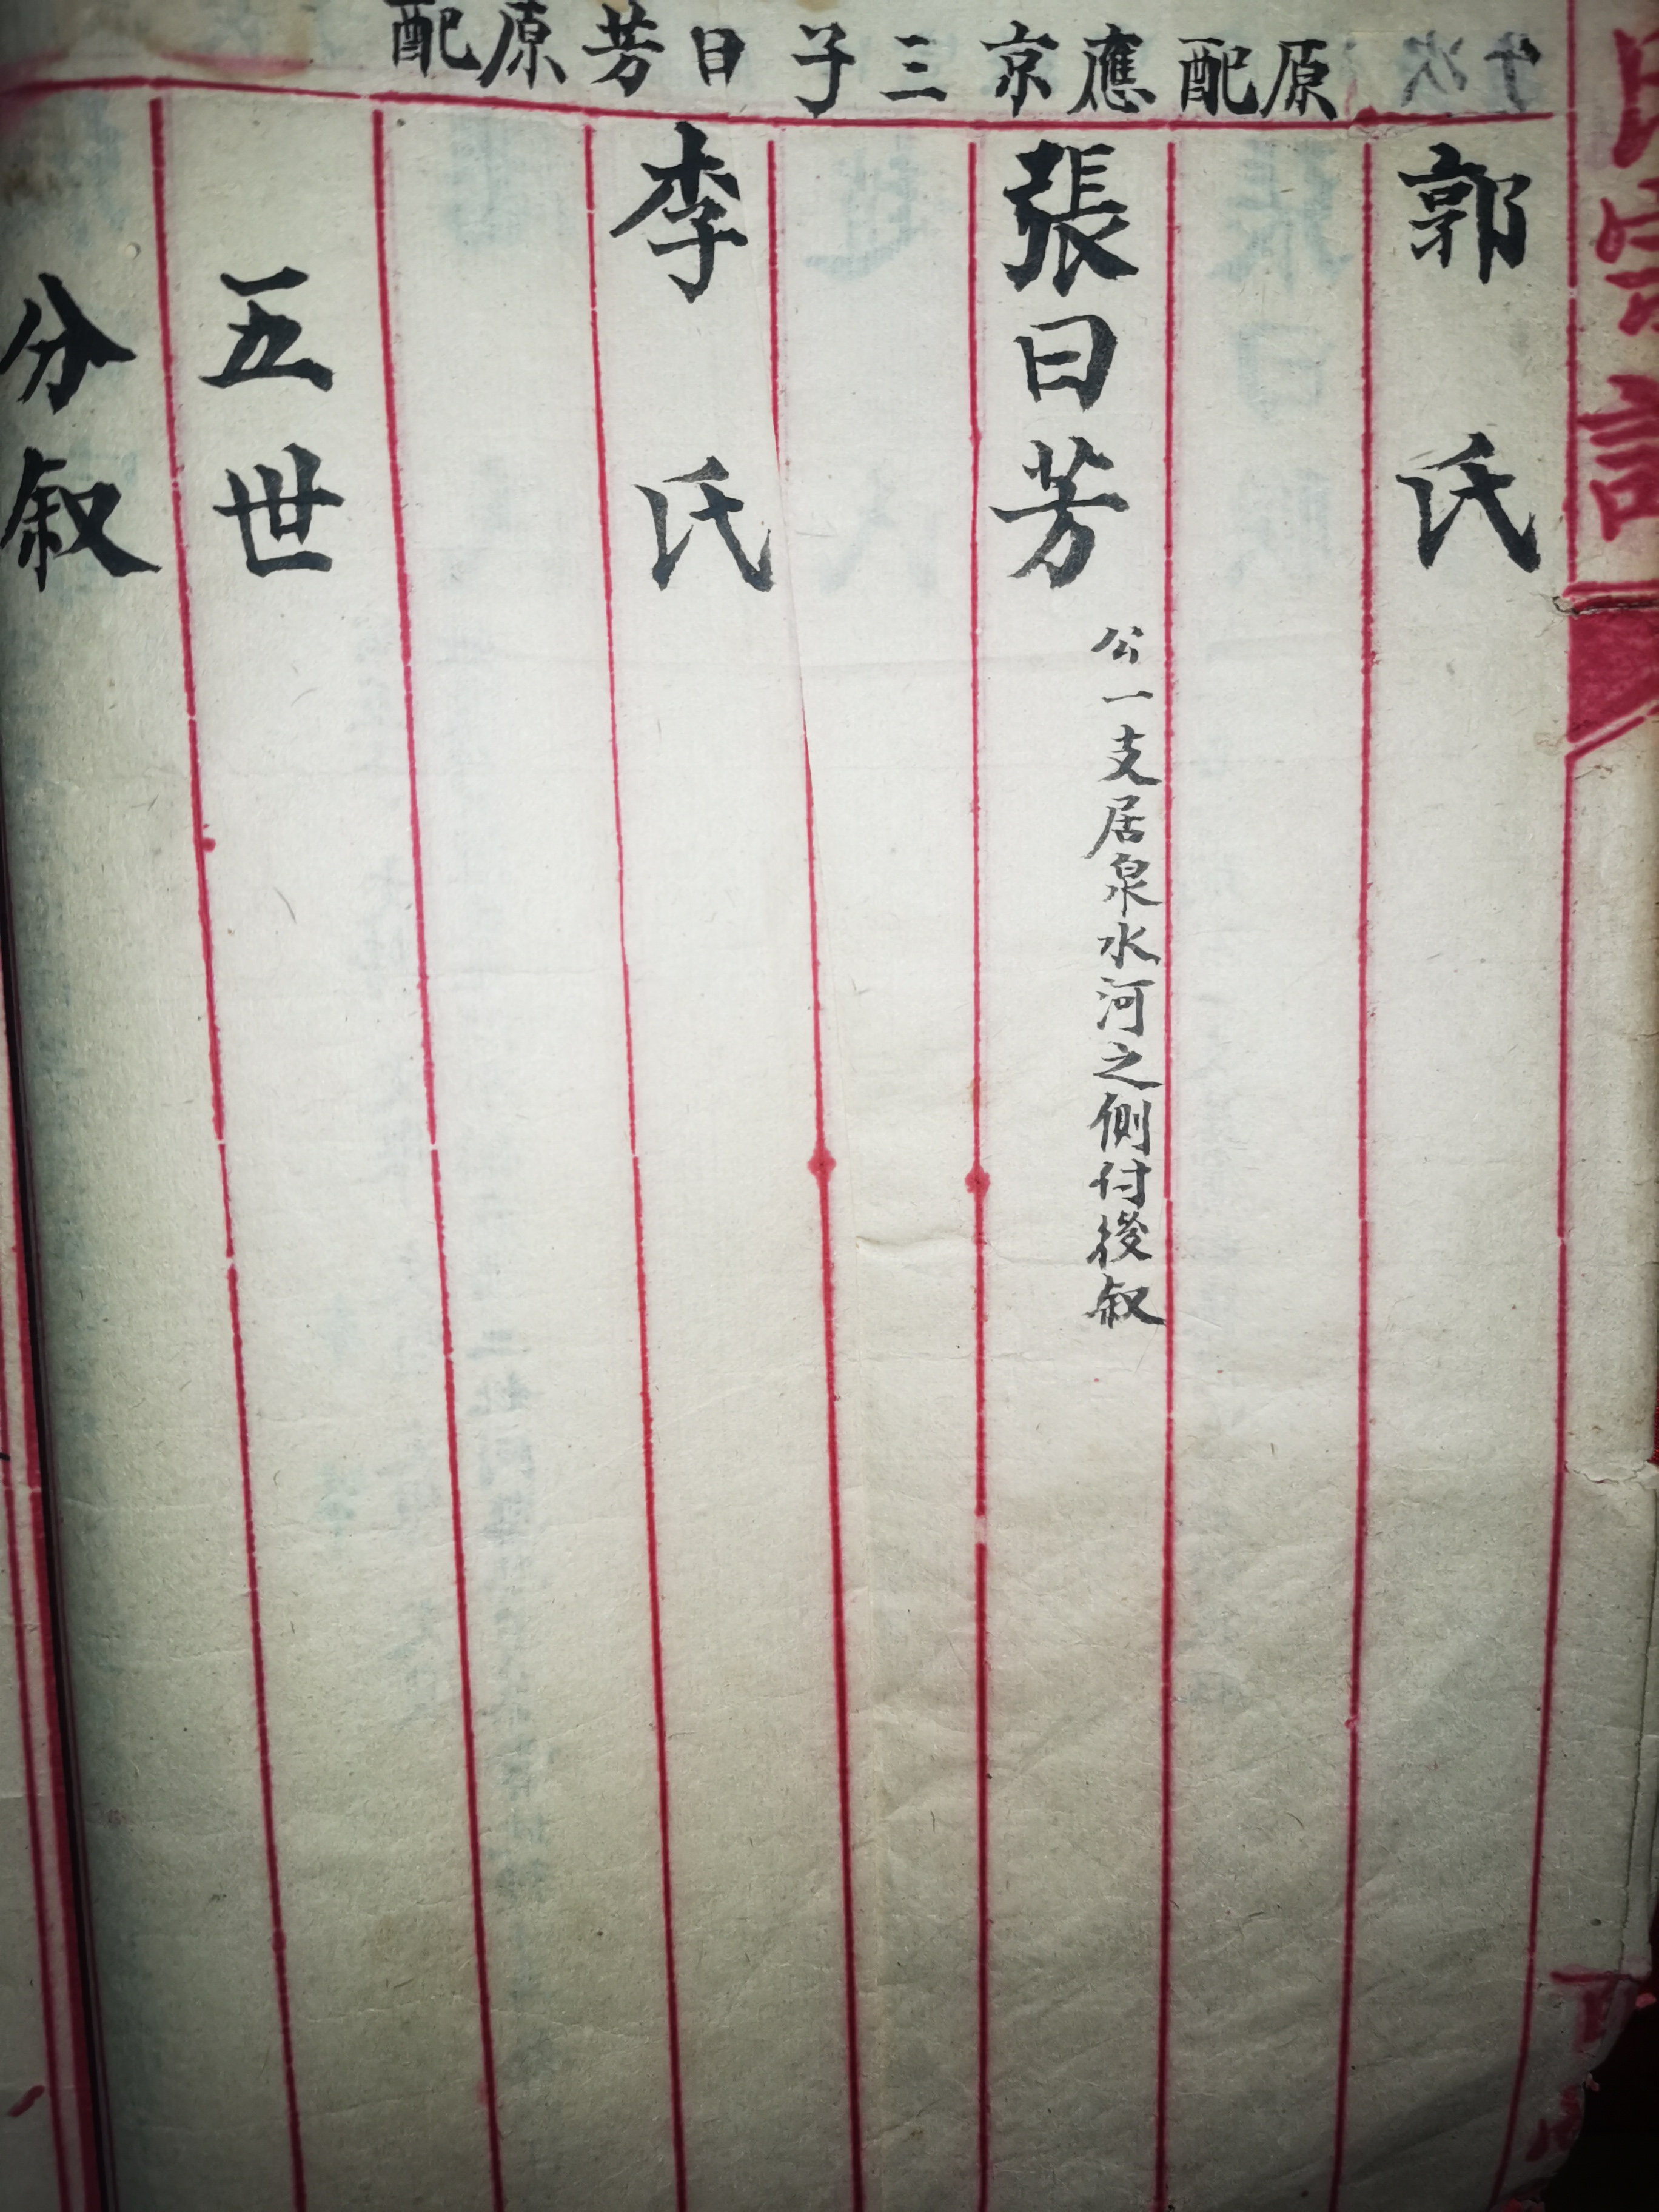 氏宗譜
原配
郭氏
應京三子
張曰芳
公一支居泉水河之側付後叙
曰芳原配
李氏
五世
分叙